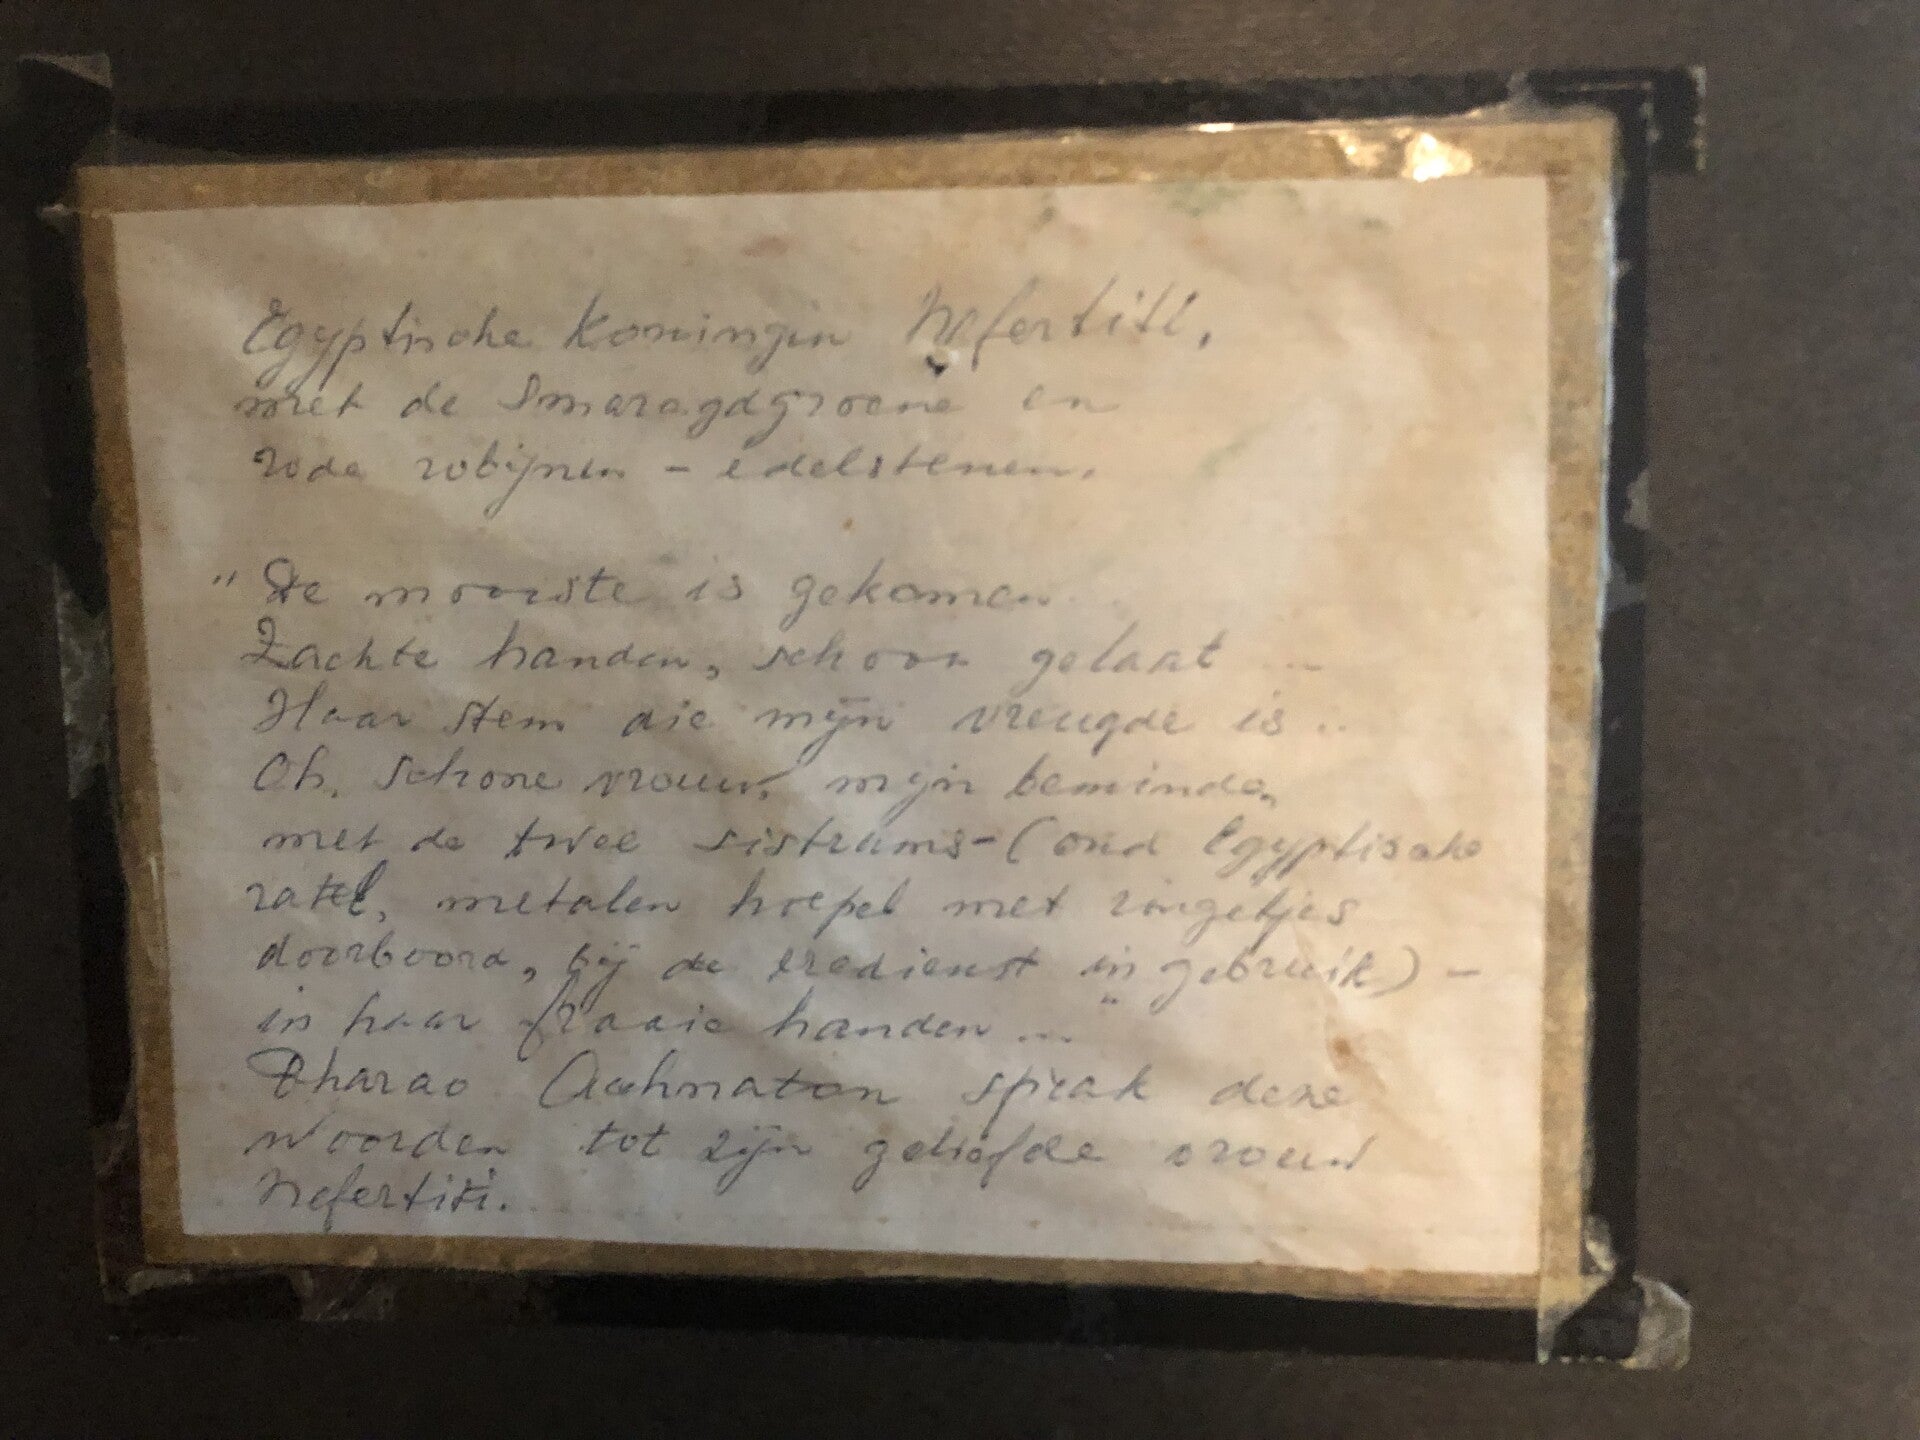 Egyptische Koningin Nefertiti,
met de Smaragdgroene en
rode robijnen - edelstenen.
"De mooiste is gekomen...
Zachte handen, schoon gelaat ...
Haar stem die mijn vreugde is ..
Oh, schone vrouw, mijn beminde,
met de twee sistrums - (oud Egyptische
ratel, metalen hoepel met ringetjes
doorboord, bij de eredienst in gebruik) -
in haar fraaie handen ..."
Pharao Achnaton sprak deze
woorden tot zijn geliefde vrouw
Nefertiti.